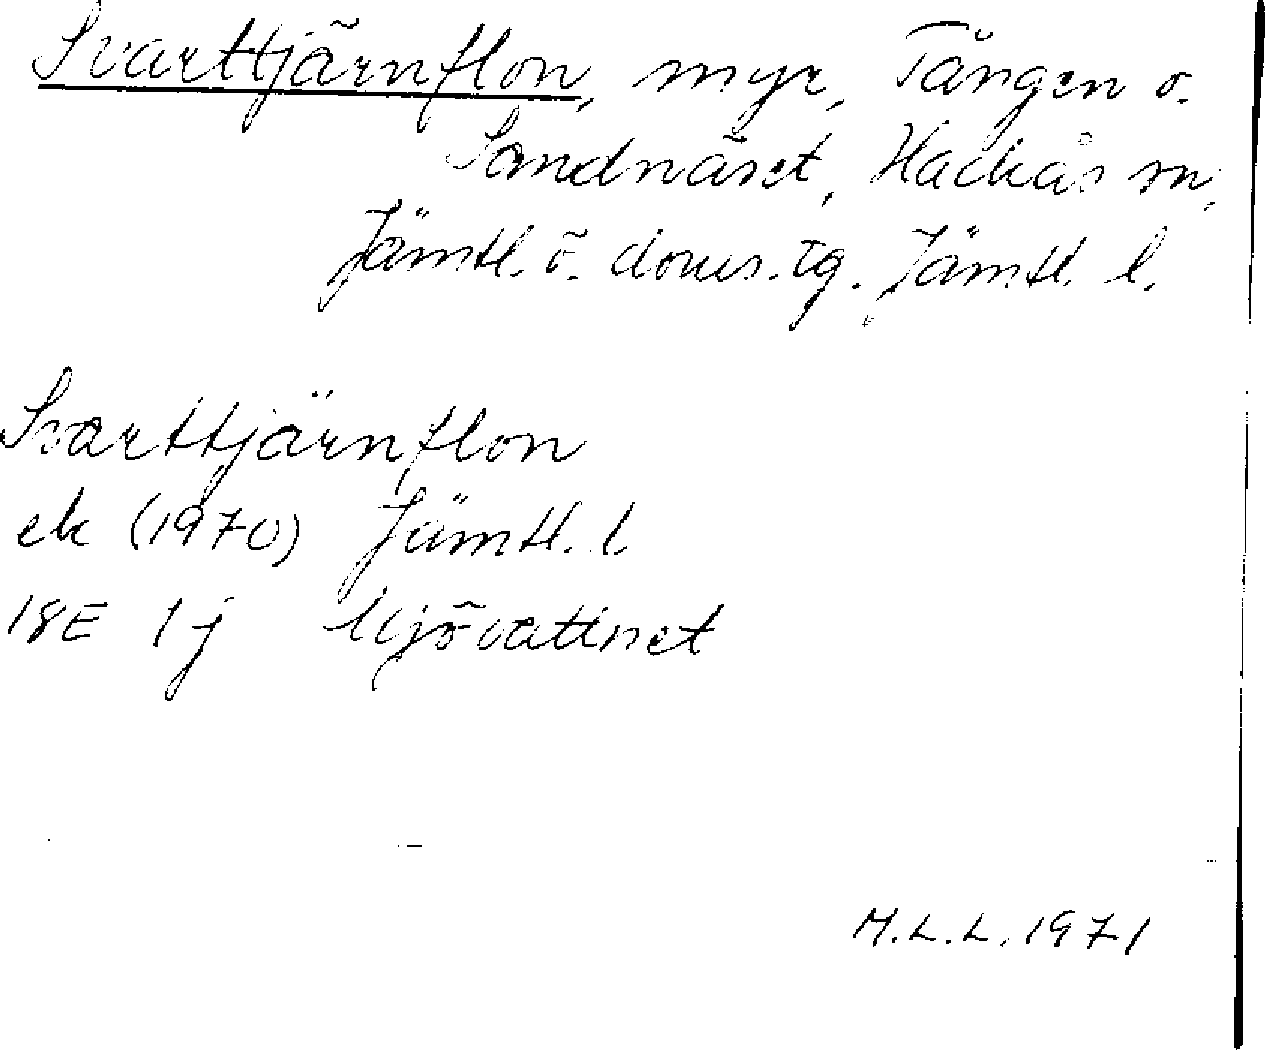 Svarttjärnflon, myr, Tängen o.
Sandnäset, Hackås sn,
Jämtl. ö. doms. tg. Jämtl. l.
Svarttjärnflon
ek (1970) Jämtl. l
18E 1j Mjövattnet
M.L.L. 1971